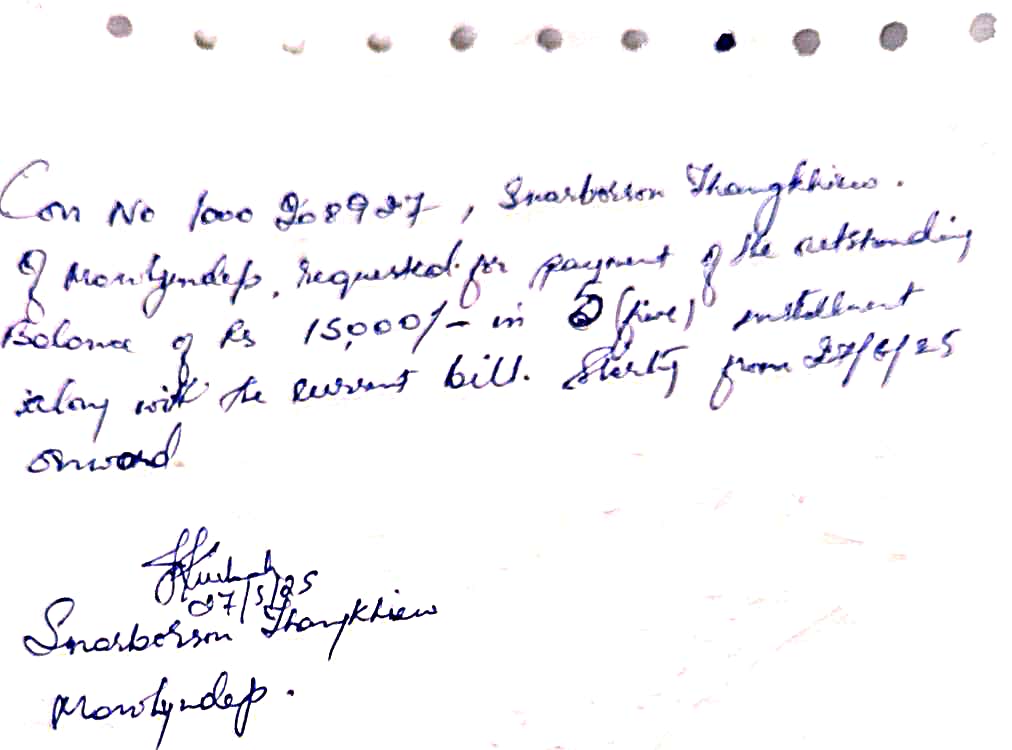 Con No 1000208927, Snarborson Thangkhiew.
of Mawlyndep, requested for payment of the outstanding
Balance of Rs 15,000/- in 5 (five) installment
along with the current bill. Starting from 27/6/25
onward.
27/5/25
Snarborson Thangkhiew
Mawlyndep.